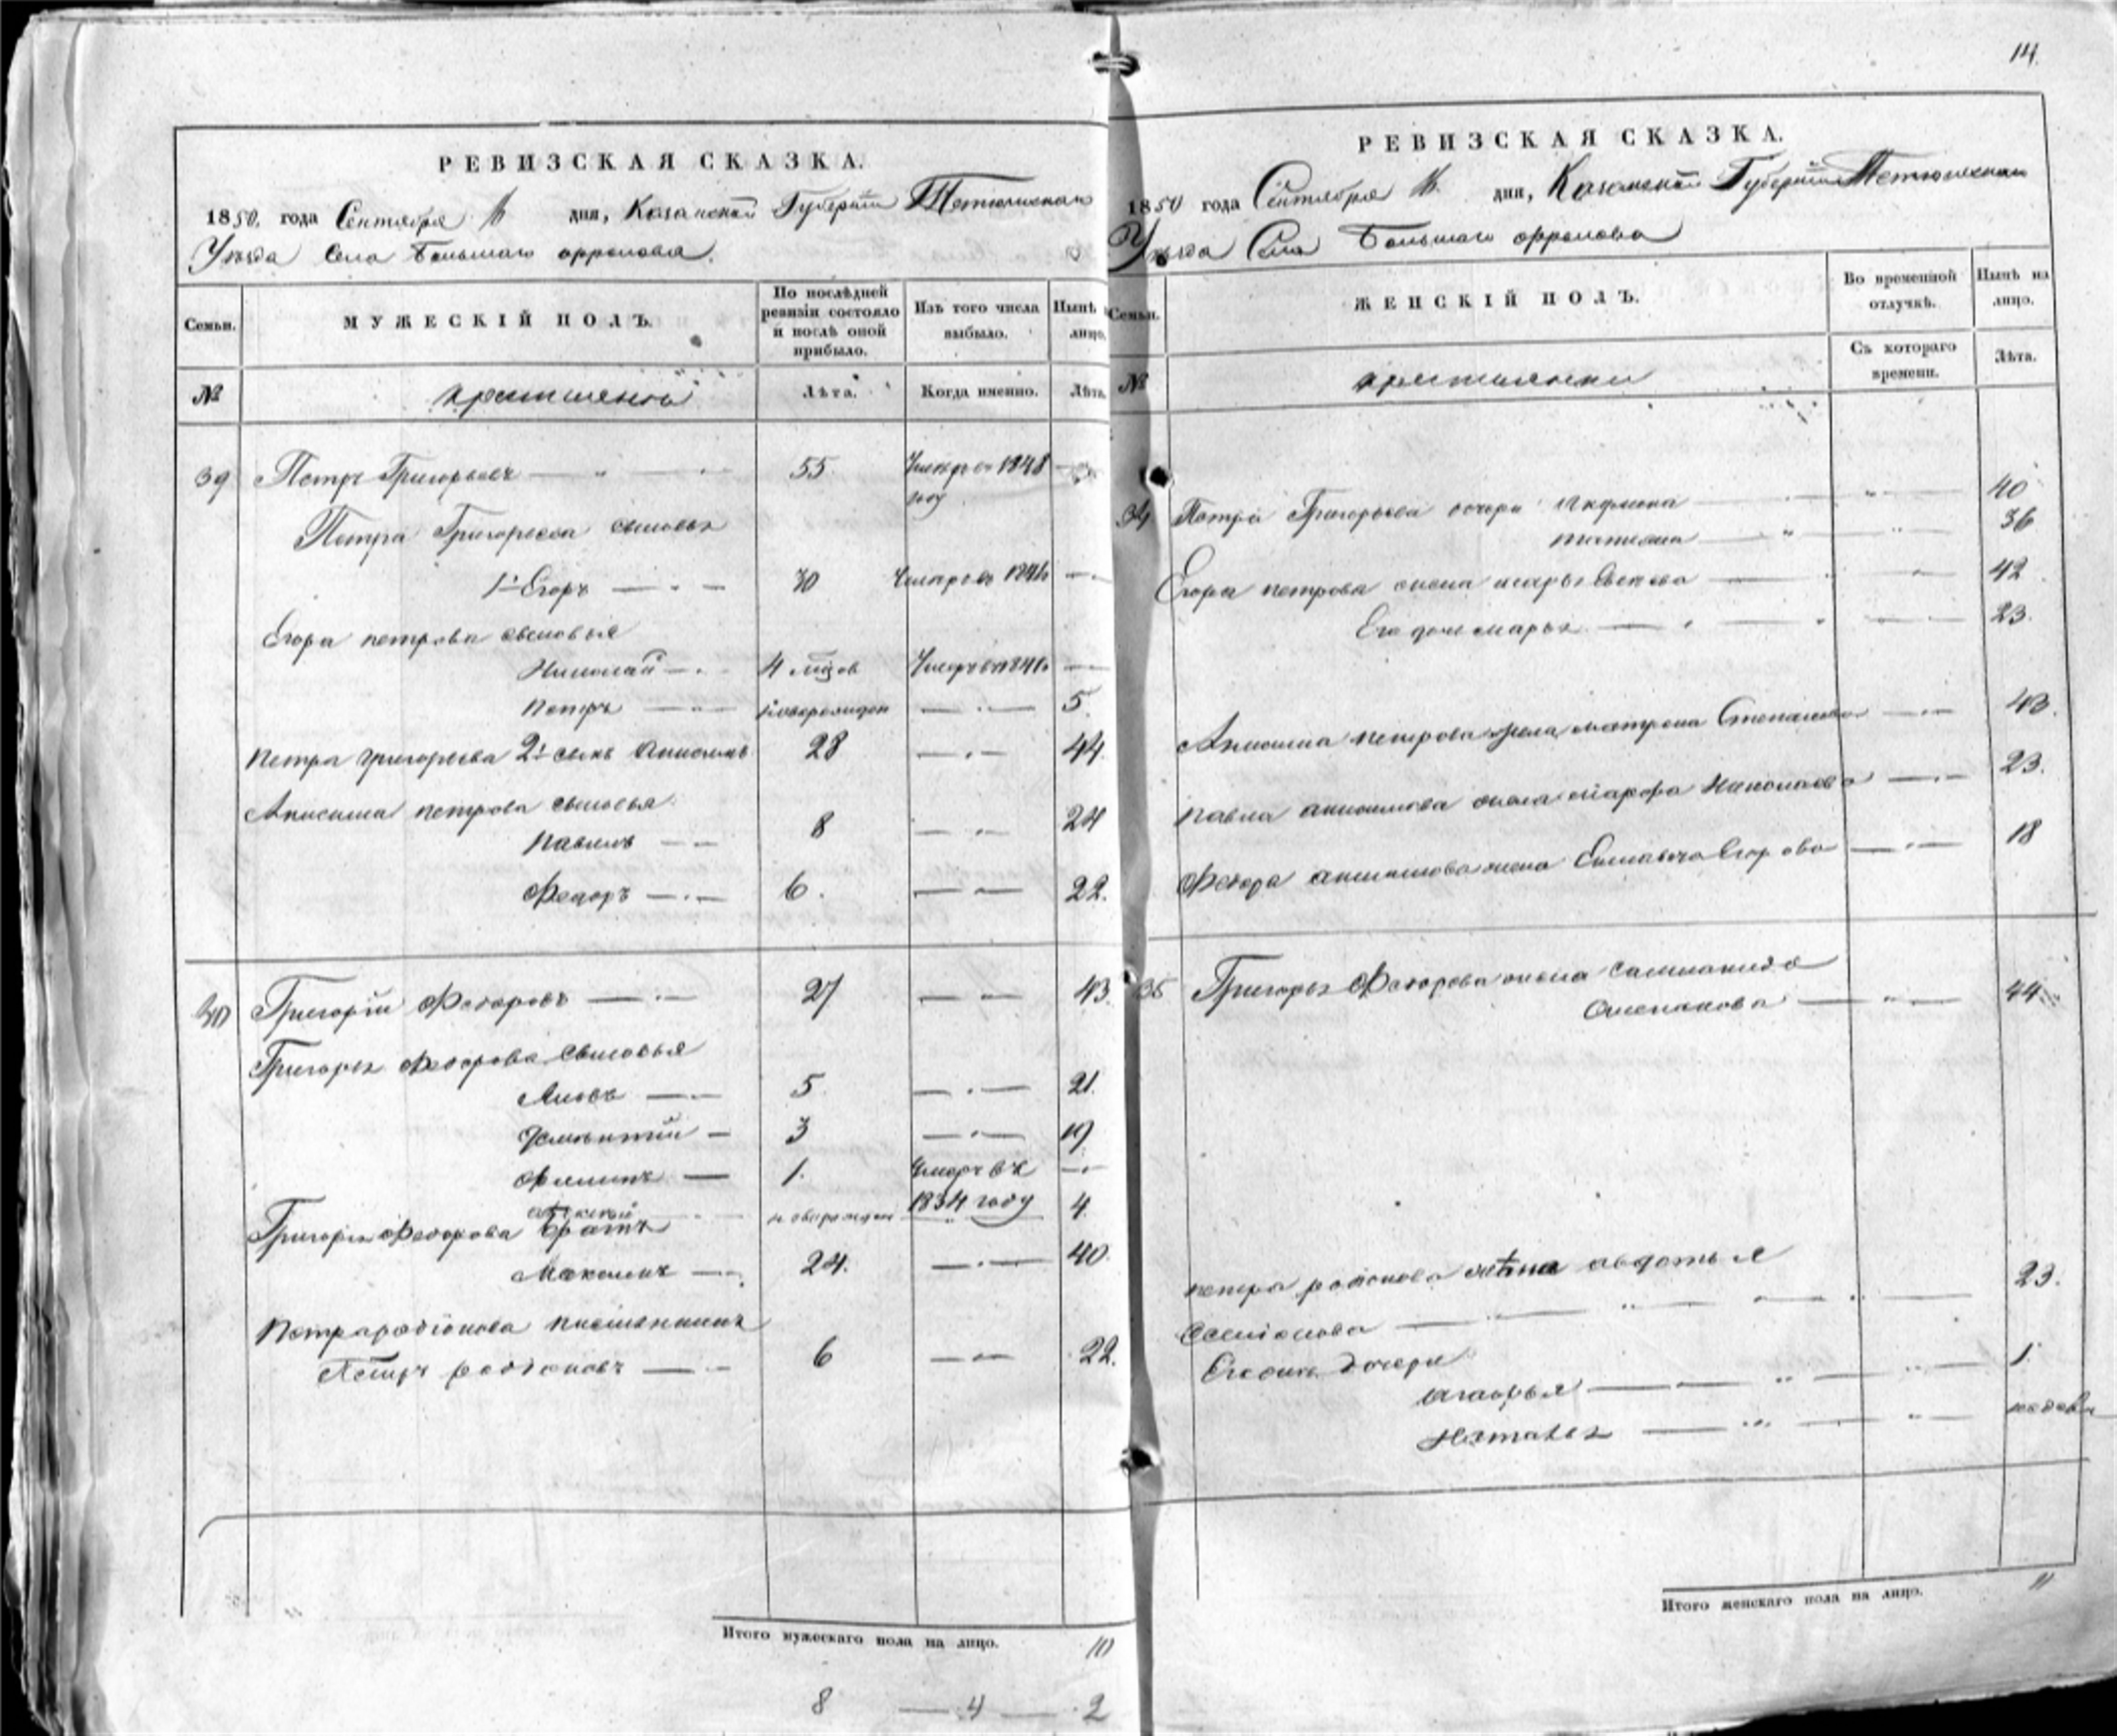 РЕВИЗСКАЯ СКАЗКА.
1850. года Сентября дня, Казанской Губернiи Тетюшскаго
Уѣзда Села Большаго Фролова.
Семьи.
МУЖЕСКІЙ ПОЛЪ.
По послѣдней ревизіи состояло и послѣ оной прибыло.
Изъ того числа выбыло.
Нынѣ лицо.
№
крестьяне
Лѣта.
Когда именно.
Лѣта.
39 Петръ Григорьевъ 55. Умеръ въ 1848
Петра Григорьева сыновья
1й Егоръ 30 Умеръ въ
Егора петрова сыновья
Николай 4 мцов Умеръ въ
петръ новорожден 5.
петра григорьева 2й сынъ Анисимъ 28 44.
Анисима петрова сыновья
павелъ 8 24
Федоръ 6. 22.
40 Григорій Федоровъ 27 43.
Григорья Федорова сыновья
Яковъ 5 21.
3 19
Филипъ 1. Умеръ въ
алексей новорожден 1834 году 4.
Григорья Федорова братъ
Максимъ 24. 40.
Петра родіонова племянникъ
Петръ родіоновъ 6 22.
Итого мужескаго пола на лицо. 10
8 — 4 — 2
14.
РЕВИЗСКАЯ СКАЗКА.
1850 года Сентября дня, Казанской Губерніи Тетюшскаго
Уѣзда Села Большаго Фролова
Семьи.
ЖЕНСКІЙ ПОЛЪ.
Во временной отлучкѣ.
Нынѣ на лицо.
№
крестьянки
Съ котораго времени.
Лѣта.
34 Петра Григорьева дочери Акулина 40
татьяна 36
Егора петрова жена 42
Его дочь марья 23.
Анисима петрова жена матрена Степанова 43.
павла анисимова жена марфа Николаева 23.
Федора анисимова жена Егорова 18
35 Григорья Федорова жена саломанида
Степанова 44
петра родіонова жена авдотья
Семіонова 23.
Его дочери
1.
Наталья недели
Итого женскаго пола на лицо. 11